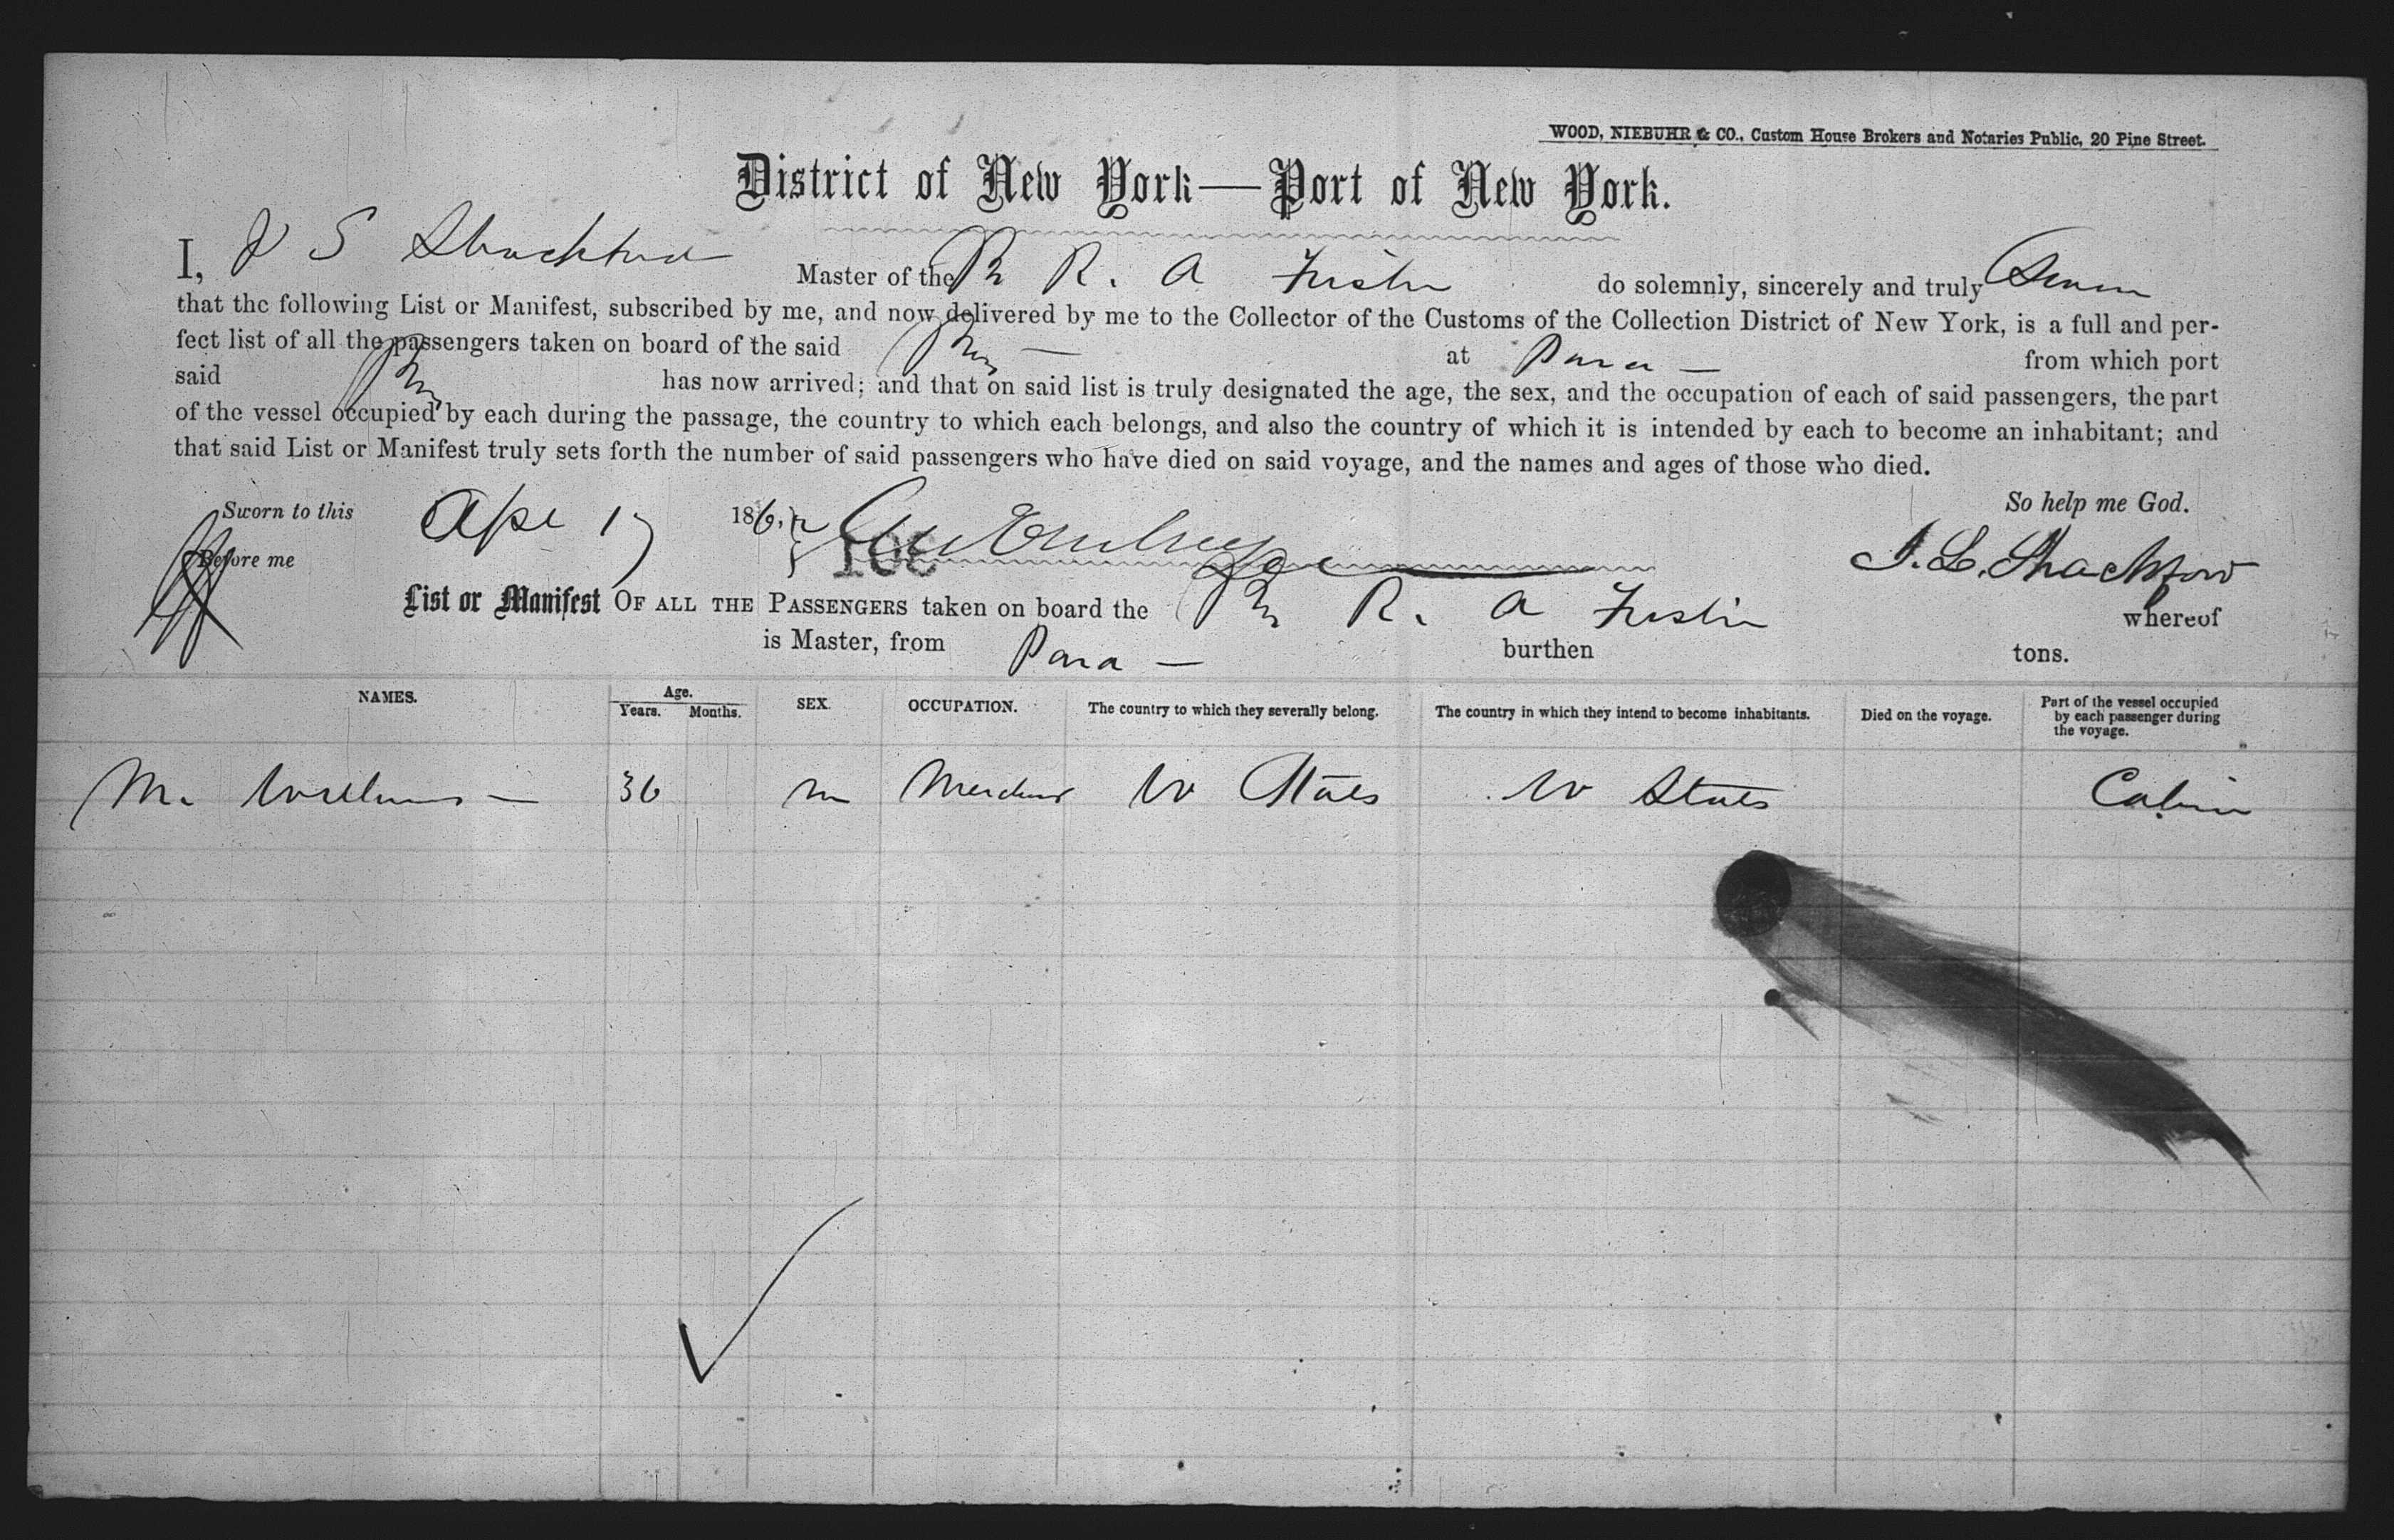 WOOD, NIEBUHR & CO., Custom House Brokers and Notaries Public, 20 Pine Street.
District of New York—Port of New York.
I, J S Shackford Master of the Br R. A Fisher do solemnly, sincerely and truly Swear
that the following List or Manifest, subscribed by me, and now delivered by me to the Collector of the Customs of the Collection District of New York, is a full and per-
fect list of all the passengers taken on board of the said Br at Para — from which port
said Br has now arrived; and that on said list is truly designated the age, the sex, and the occupation of each of said passengers, the part
of the vessel occupied by each during the passage, the country to which each belongs, and also the country of which it is intended by each to become an inhabitant; and
that said List or Manifest truly sets forth the number of said passengers who have died on said voyage, and the names and ages of those who died.
Sworn to this Apl 17 186 So help me God.
Before me
List or Manifest OF ALL THE PASSENGERS taken on board the Br R. A Fisher whereof
is Master, from Para — burthen tons.
NAMES. Age. Years. Months. SEX. OCCUPATION. The country to which they severally belong. The country in which they intend to become inhabitants. Died on the voyage. Part of the vessel occupied by each passenger during the voyage.
M. Williams — 36 m Merchant U States U States Cabin